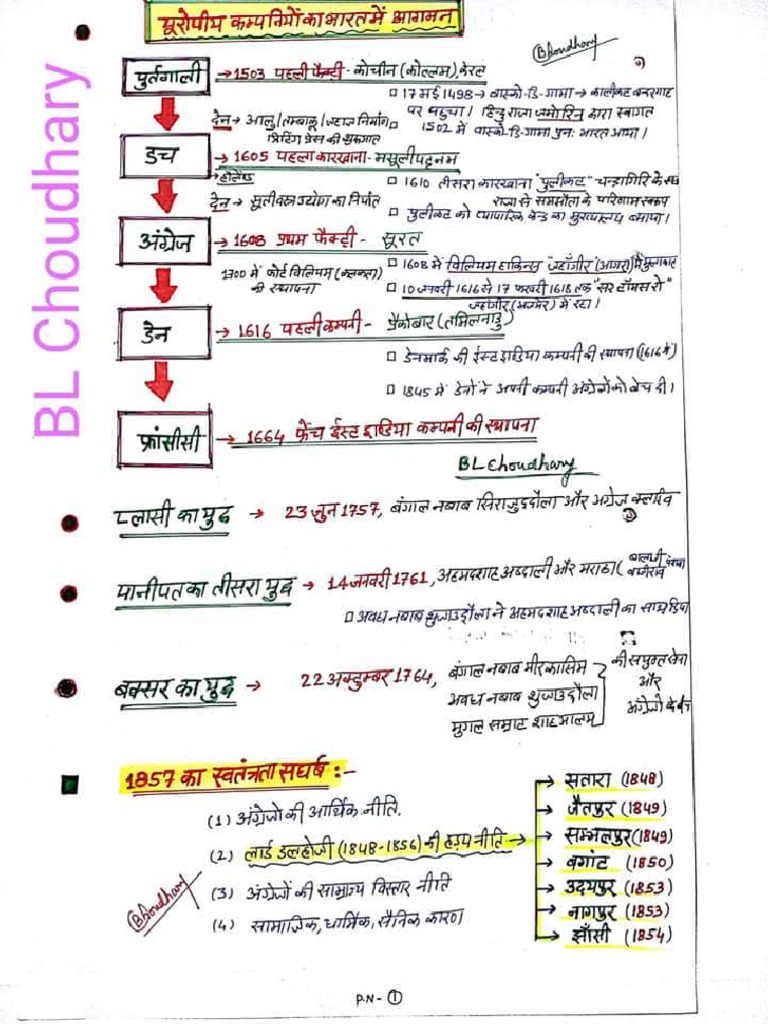 यूरोपीय कम्पनियों का भारत में आगमन
BL Choudhary
Bhoudhary
पुर्तगाली → 1503 पहली फैक्ट्री - कोचीन (कोल्लम), केरल
□ 17 मई 1498 → वास्को-डि-गामा → कालीकट बन्दरगाह
पर पहुचा। हिन्दु राजा जमोरिन द्वारा स्वागत
□ 1502 में वास्को-डि-गामा पुनः भारत आया।
देन → आलु/तम्बाकू/जहाज निर्माण
प्रिंटिंग प्रेस की शुरूआत
डच → 1605 पहला कारखाना - मसुलीपट्टनम
→ हॉलैण्ड
□ 1610 तीसरा कारखाना "पुलीकट" चन्द्रागिरि के
राजा से समझौता के परिणाम स्वरूप
देन → सूतीवस्त्र उद्योग का निर्यात
□ पुलीकट को व्यापारिक केन्द्र का मुख्यालय बनाया।
अंग्रेज → 1608 प्रथम फैक्ट्री - सूरत
1700 में फोर्ट विलियम (कलकत्ता)
की स्थापना
□ 1608 में विलियम हॉकिन्स "जहाँगीर" (आगरा) में मुलाकात
□ 10 जनवरी 1616 से 17 फरवरी 1618 तक "सर टॉमस रो"
जहांगीर (अजमेर) में रहा।
डेन → 1616 पहली कम्पनी - त्रैंकोबार (तमिलनाडु)
□ डेनमार्क की ईस्ट इण्डिया कम्पनी की स्थापना (1616 में)
□ 1845 में डेनों ने अपनी कम्पनी अंग्रेजों को बेच दी।
फ्रांसीसी → 1664 फ्रेंच ईस्ट इण्डिया कम्पनी की स्थापना
BL Choudhary
प्लासी का युद्ध → 23 जुन 1757, बंगाल नबाब सिराजुद्दौला और अंग्रेज क्लाईव
पानीपत का तीसरा युद्ध → 14 जनवरी 1761, अहमदशाह अब्दाली और मराठा (
□ अवध नबाब शुजाउद्दौला ने अहमदशाह अब्दाली का साथ दिया
बक्सर का युद्ध → 22 अक्टुम्बर 1764, बंगाल नबाब मीर कासिम
अवध नबाब शुजाउद्दौला
मुगल सम्राट शाहआलम
की संयुक्त सेना
और
अंग्रेजों के बीच
1857 का स्वतंत्रता संघर्ष :-
(1) अंग्रेजो की आर्थिक नीति.
(2) लार्ड डलहोजी (1848-1856) की हड़प नीति →
(3) अंग्रेजों की साम्राज्य विस्तार नीति
(4) सामाजिक, धार्मिक, सैनिक कारण
→ सतारा (1848)
→ जैतपुर (1849)
→ सम्भलपुर (1849)
→ बघाट (1850)
→ उदयपुर (1853)
→ नागपुर (1853)
→ झाँसी (1854)
Bhoudhary
P.N- ①